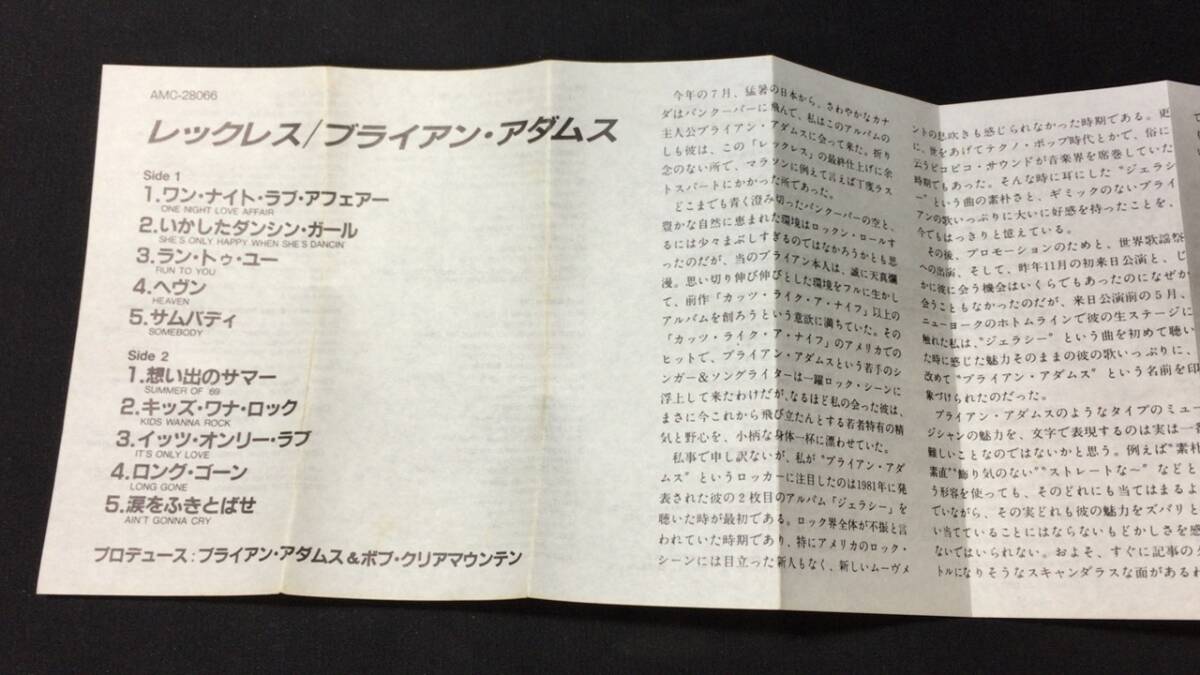 AMC-28066
レックレス/ブライアン・アダムス
Side 1
1.ワン・ナイト・ラブ・アフェアー
ONE NIGHT LOVE AFFAIR
2.いかしたダンシン・ガール
SHE'S ONLY HAPPY WHEN SHE'S DANCIN'
3.ラン・トゥ・ユー
RUN TO YOU
4.ヘヴン
HEAVEN
5.サムバディ
SOMEBODY
Side 2
1.想い出のサマー
SUMMER OF '69
2.キッズ・ワナ・ロック
KIDS WANNA ROCK
3.イッツ・オンリー・ラブ
IT'S ONLY LOVE
4.ロング・ゴーン
LONG GONE
5.涙をふきとばせ
AIN'T GONNA CRY
プロデュース:ブライアン・アダムス&ボブ・クリアマウンテン
今年の7月、猛暑の日本から、さわやかなカナ
ダはバンクーバーに飛んで、私はこのアルバムの
主人公ブライアン・アダムスに会って来た。折り
しも彼は、この「レックレス」の最終仕上げに余
念のない所で、マラソンに例えて言えば丁度ラス
トスパートにかかった所であった。
どこまでも青く澄み切ったバンクーバーの空と、
豊かな自然に恵まれた環境はロックン・ロールす
るには少々まぶしすぎるのではなかろうかとも思
ったのだが、当のブライアン本人は、誠に天真爛
漫。思い切り伸び伸びとした環境をフルに生かし
て、前作「カッツ・ライク・ア・ナイフ」以上の
アルバムを創ろうという意欲に満ちていた。その
「カッツ・ライク・ア・ナイフ」のアメリカでの
ヒットで、ブライアン・アダムスという若手のシ
ンガー&ソングライターは一躍ロック・シーンに
浮上して来たわけだが、なるほど私の会った彼は、
まさに今これから飛び立たんとする若者特有の精
気と野心を、小柄な身体一杯に漂わせていた。
私事で申し訳ないが、私が“ブライアン・アダ
ムス”というロッカーに注目したのは1981年に発
表された彼の2枚目のアルバム「ジェラシー」を
聴いた時が最初である。ロック界全体が不振と言
われていた時期であり、特にアメリカのロック・
シーンには目立った新人もなく、新しいムーヴメ
ントの息吹きも感じられなかった時期である。更
に、世をあげてテクノ・ポップ時代とかで、俗に
云うピコピコ・サウンドが音楽界を席巻していた
時期でもあった。そんな時に耳にした“ジェラシ
ー”という曲の素朴さと、ギミックのないブライ
アンの歌いっぷりに大いに好感を持ったことを、
今でもはっきりと憶えている。
その後、プロモーションのためと、世界歌謡祭
への出演、そして、昨年11月の初来日公演と、じ
かに彼に会う機会はいくらでもあったのになぜか
会うこともなかったのだが、来日公演前の5月、
ニューヨークのボトムラインで彼の生ステージに
触れた私は、“ジェラシー”という曲を初めて聴い
た時に感じた魅力そのままの彼の歌いっぷりに、
改めて“ブライアン・アダムス”という名前を印
象づけられたのだった。
ブライアン・アダムスのようなタイプのミュー
ジシャンの魅力を、文字で表現するのは実は一番
難しいことなのではないかと思う。例えば“素朴
素直”“飾り気のない”“ストレートな～”などと
う形容を使っても、そのどれにも当てはまるよ
ていながら、その実どれも彼の魅力をズバリと
い当てていることにはならないもどかしさを感
ないではいられない。およそ、すぐに記事のタ
トルになりそうなスキャンダラスな面があるわ